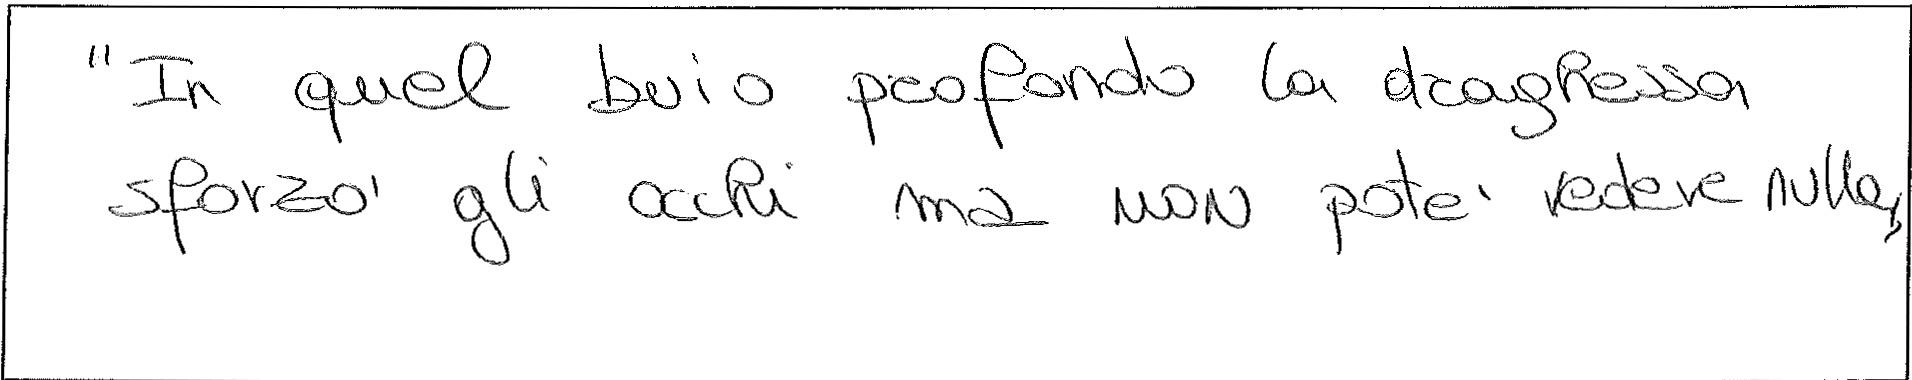 "In quel buio profondo la draghessa
sforzo' gli occhi ma non pote' vedere nulla,